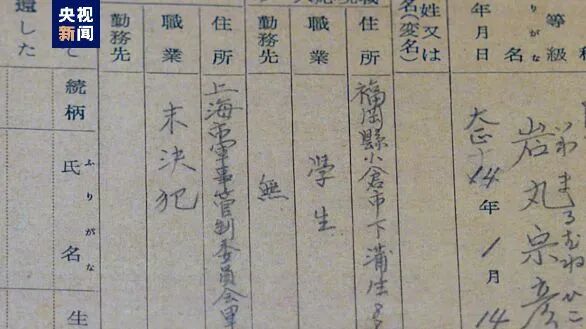 央视新闻
等級
がな
名
いわまるむねひこ
岩丸宗彦
年月日
大正14年1月14
姓又は
名(変名)
住所
福岡縣小倉市下蒲生
職業
學生
勤務先
無
住所
上海市軍事管制委員会里
職業
未決犯
勤務先
て
還した
続柄
ふりがな
氏名
生